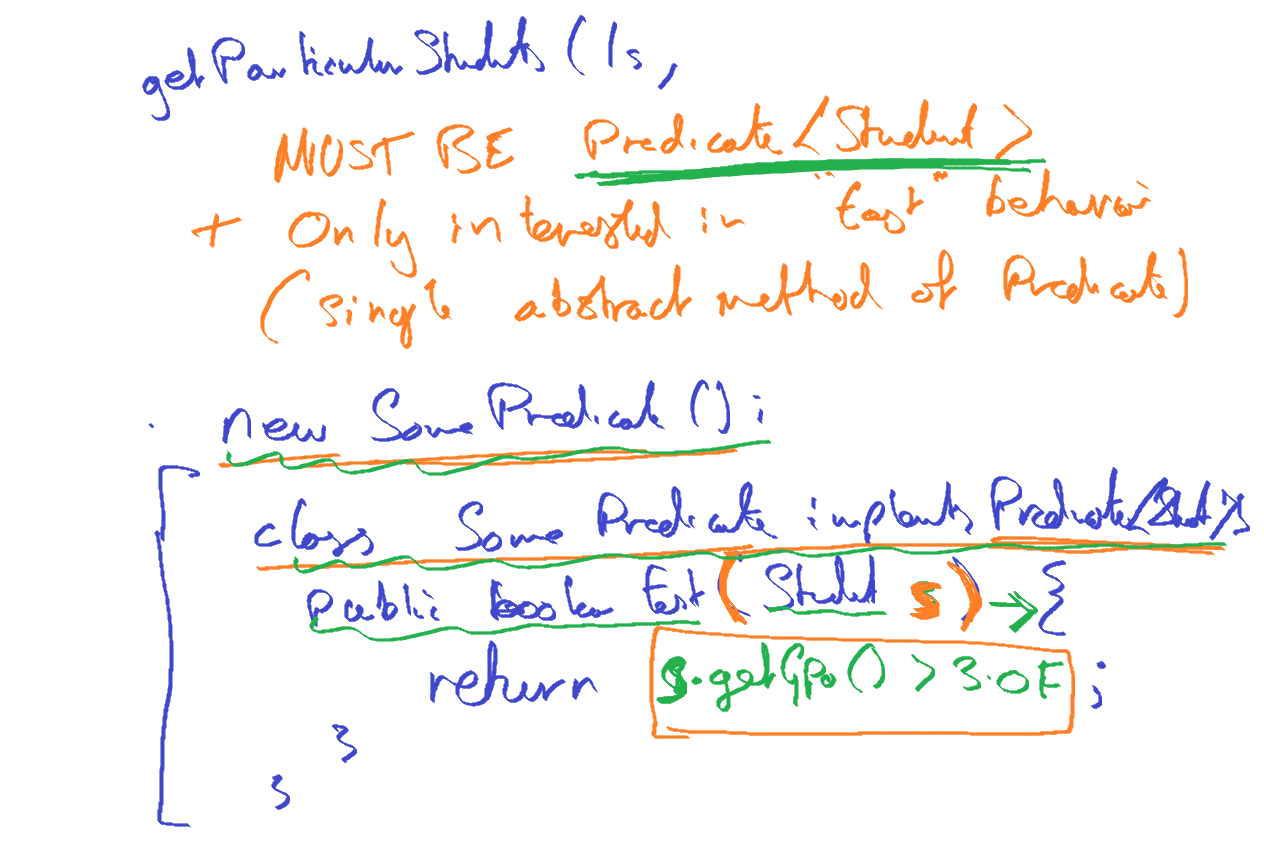 getParticularStudents (ls,
MUST BE Predicate<Student>
+ Only interested in "test" behavior
(single abstract method of Predicate)
new SomePredicate();
class SomePredicate implements Predicate<Student>{
public boolean test (Student s) → {
return s.getGpa() > 3.0F ;
}
}